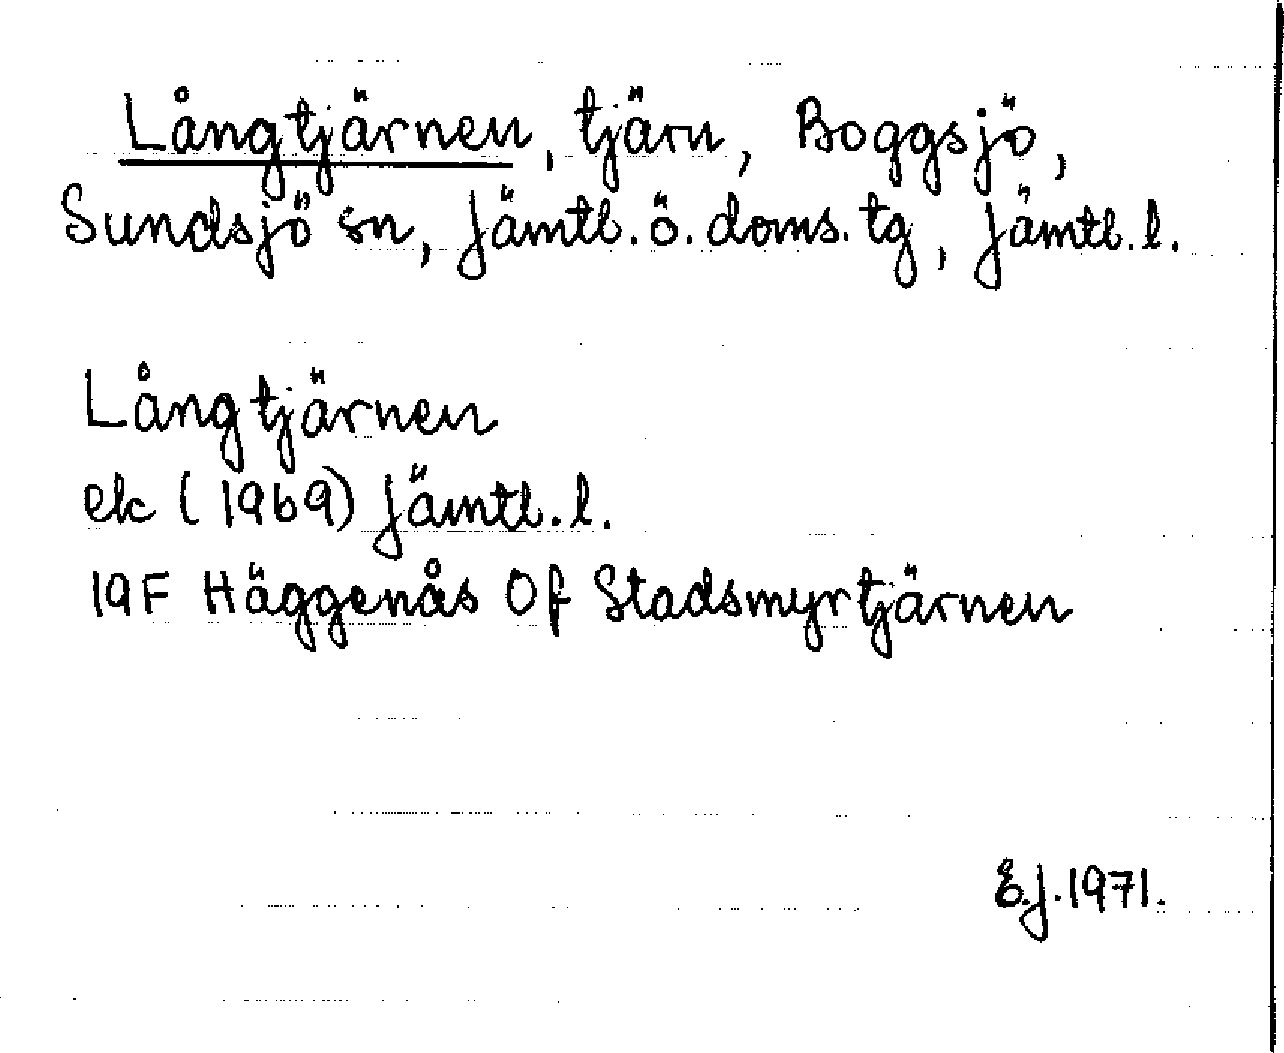 Långtjärnen, tjärn, Boggsjö,
Sundsjö sn, Jämtl. ö. doms. tg, Jämtl. l.
Långtjärnen
ek (1969) Jämtl. l.
19F Häggenås 0f Stadsmyrtjärnen
E.J. 1971.